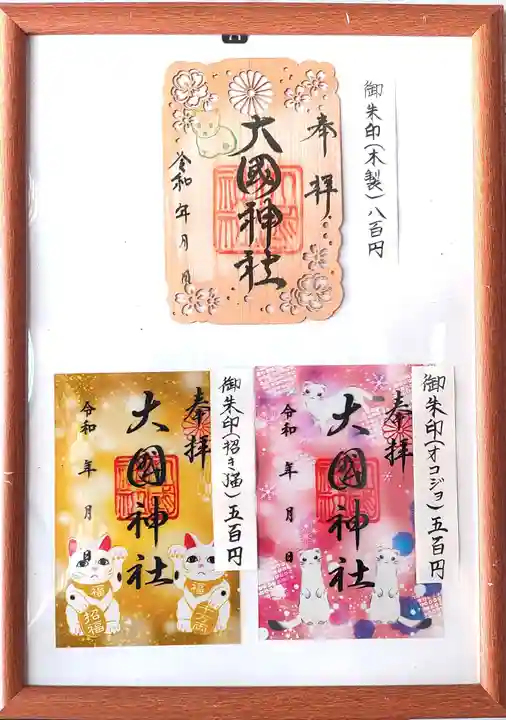 御朱印(木製)八百円
奉拝
大國神社
令和 年 月 日
御朱印(招き猫)五百円
奉拝
大國神社
令和 年 月 日
福
招福
福
千万両
御朱印(オコジョ)五百円
奉拝
大國神社
令和 年 月 日